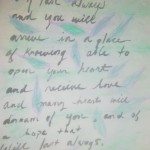 I am always
and you will
arrive in a place
of knowing able to
open your heart
and receive love
and many hearts will
of you, and of
a hope that
last always.